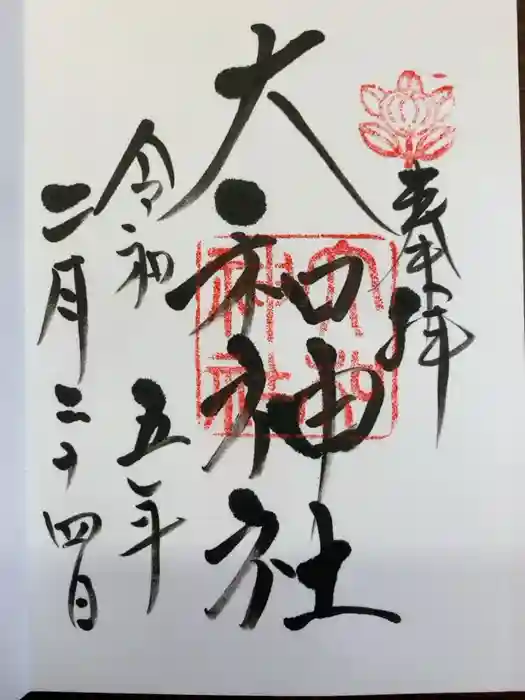 奉拝
大和神社
令和五年
二月二十四日
大和神社